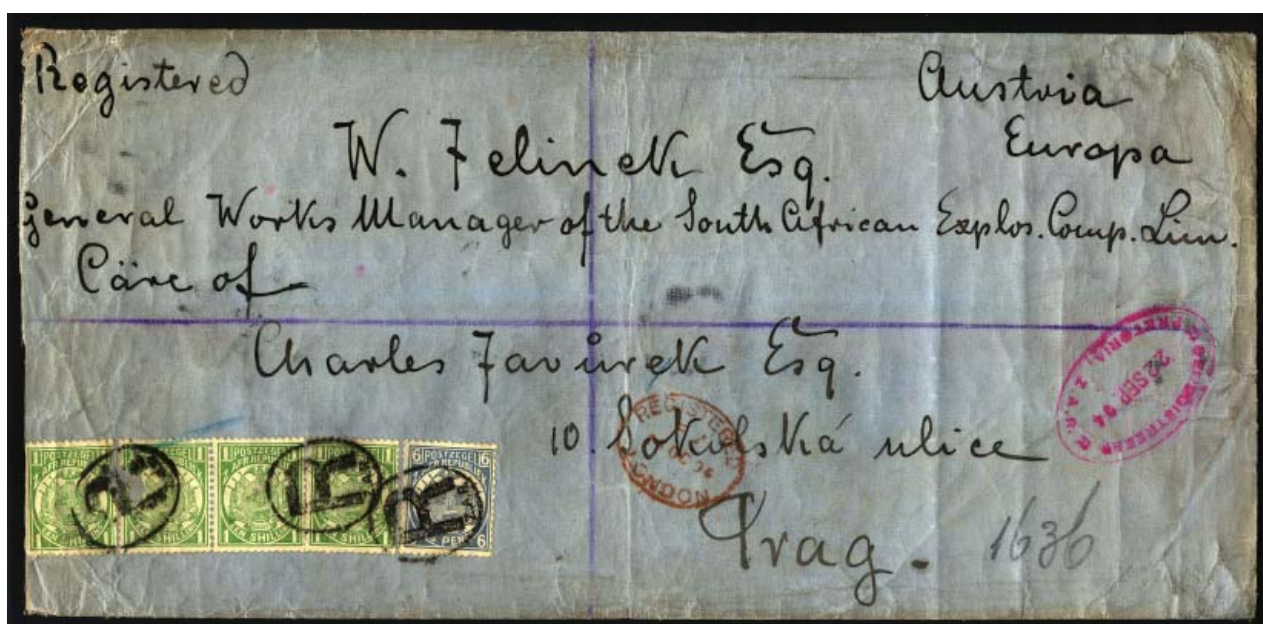 Registered
Austria
Europa
W. Jelinek Esq.
General Works Manager of the South African Explos. Comp. Lim.
Cäre of
Charles Javůrek Esq.
10. Sokolská ulice
Prag.
1636
REGISTERED
LONDON
22 SEP 94
PRETORIA, Z.A.R.
1 POSTZEGEL 1
1 POSTZEGEL 1
6 POSTZEGEL 6
EEN SHILLING
R
R
R